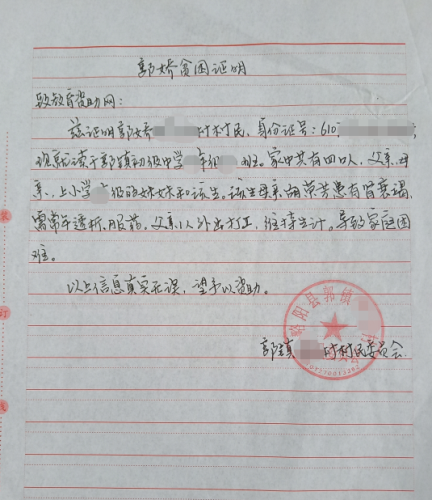 郭娇贫困证明
致教育资助网：
兹证明郭娇 村村民，身份证号：610
现就读于郭镇初级中学 年级 班。家中共有四口人，父亲、母
亲、上小学 年级的妹妹和该生。该生母亲 患有肾衰竭，
需常年透析、服药。父亲以外出打工，维持生计。导致家庭困
难。
以上信息真实无误，望予以资助。
略阳县郭镇
郭镇 村村民委员会